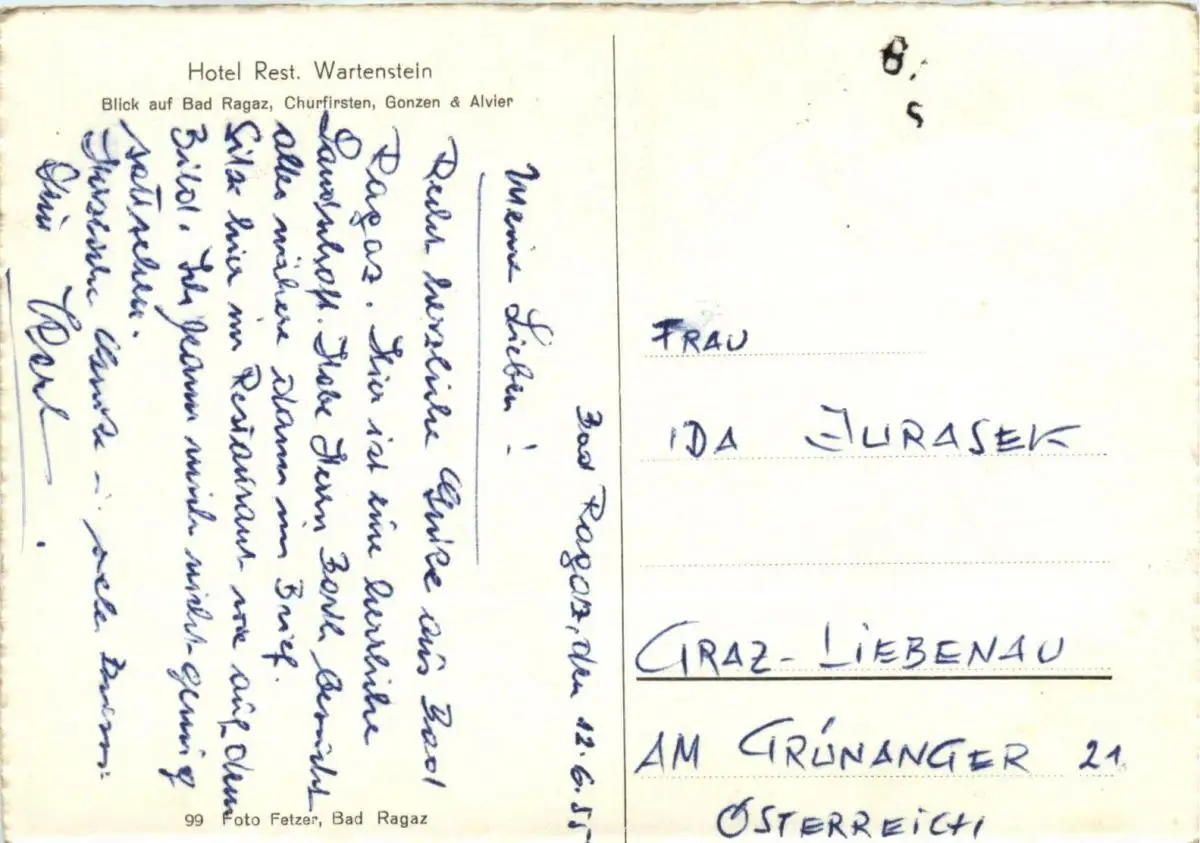 Hotel Rest. Wartenstein
Blick auf Bad Ragaz, Churfirsten, Gonzen & Alvier
Bad Ragaz, den 12.6.5
Meine Lieben!
Recht herzliche Grüße aus Bad
Ragaz. Hier ist eine herrliche
Landschaft. Habe Herrn Barth besucht
alles nähere dann im Brief.
Sitze hier im Restaurant wie auf dem
Bild. Ich kann mich nicht genug
sattsehen.
Herzliche Grüße u. viele Bussi
Dein Karl.
99 Foto Fetzer, Bad Ragaz
FRAU
IDA JURASEK
GRAZ-LIEBENAU
AM GRÜNANGER 21
ÖSTERREICH